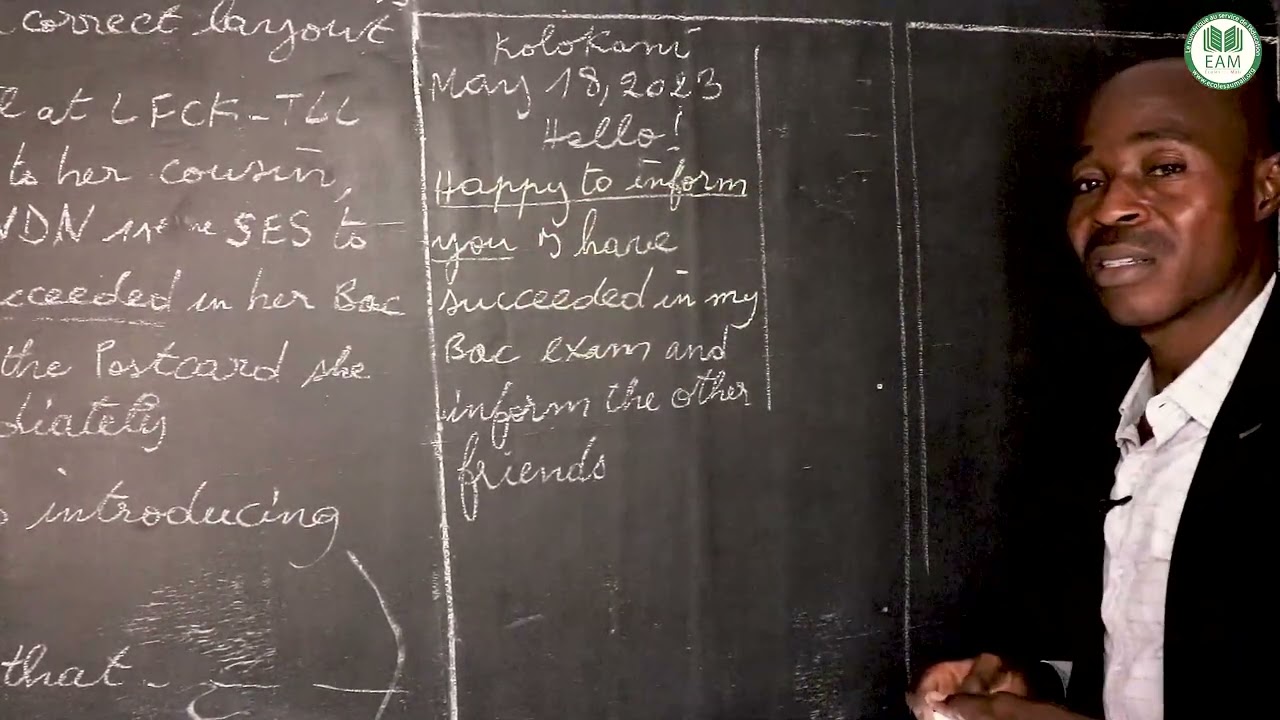 correct layout
at LFCK-TLL
to her cousin,
SES to
cceeded in her Bac
the Postcard she
diately
introducing
that
Kolokani
May 18, 2023
Hello!
Happy to inform
you I have
succeeded in my
Bac exam and
inform the other
friends
EAM
www.ecolesaumali.org